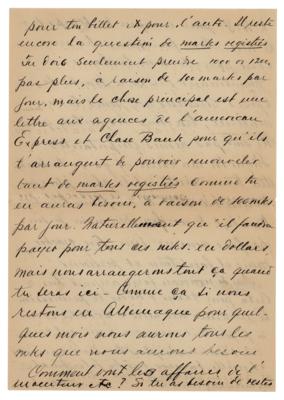 pour ton billet et pour l'auto. Il reste
encore la question de marks registrés
Tu dois seulement prendre 1000 or 1200
pas plus, à raison de 100 marks par
jour, mais le chose principal est une
lettre aux agences de l'American
Express et Chase Bank pour qu'ils
t'arrangent de pouvoir renouveler
tant de marks registrés comme tu
en auras besoin, à raison de 100 mks
par jour. Naturellement qu'il faudra
payer pour tous ces mks. en dollars
mais nous arrangerons tout ça quand
tu seras ici - Comme ça si nous
restons en Allemagne pour quel-
ques mois nous aurons tous les
mks que nous aurons besoin
Comment vont les affaires de l'
inventeur etc? Si tu as besoin de rester